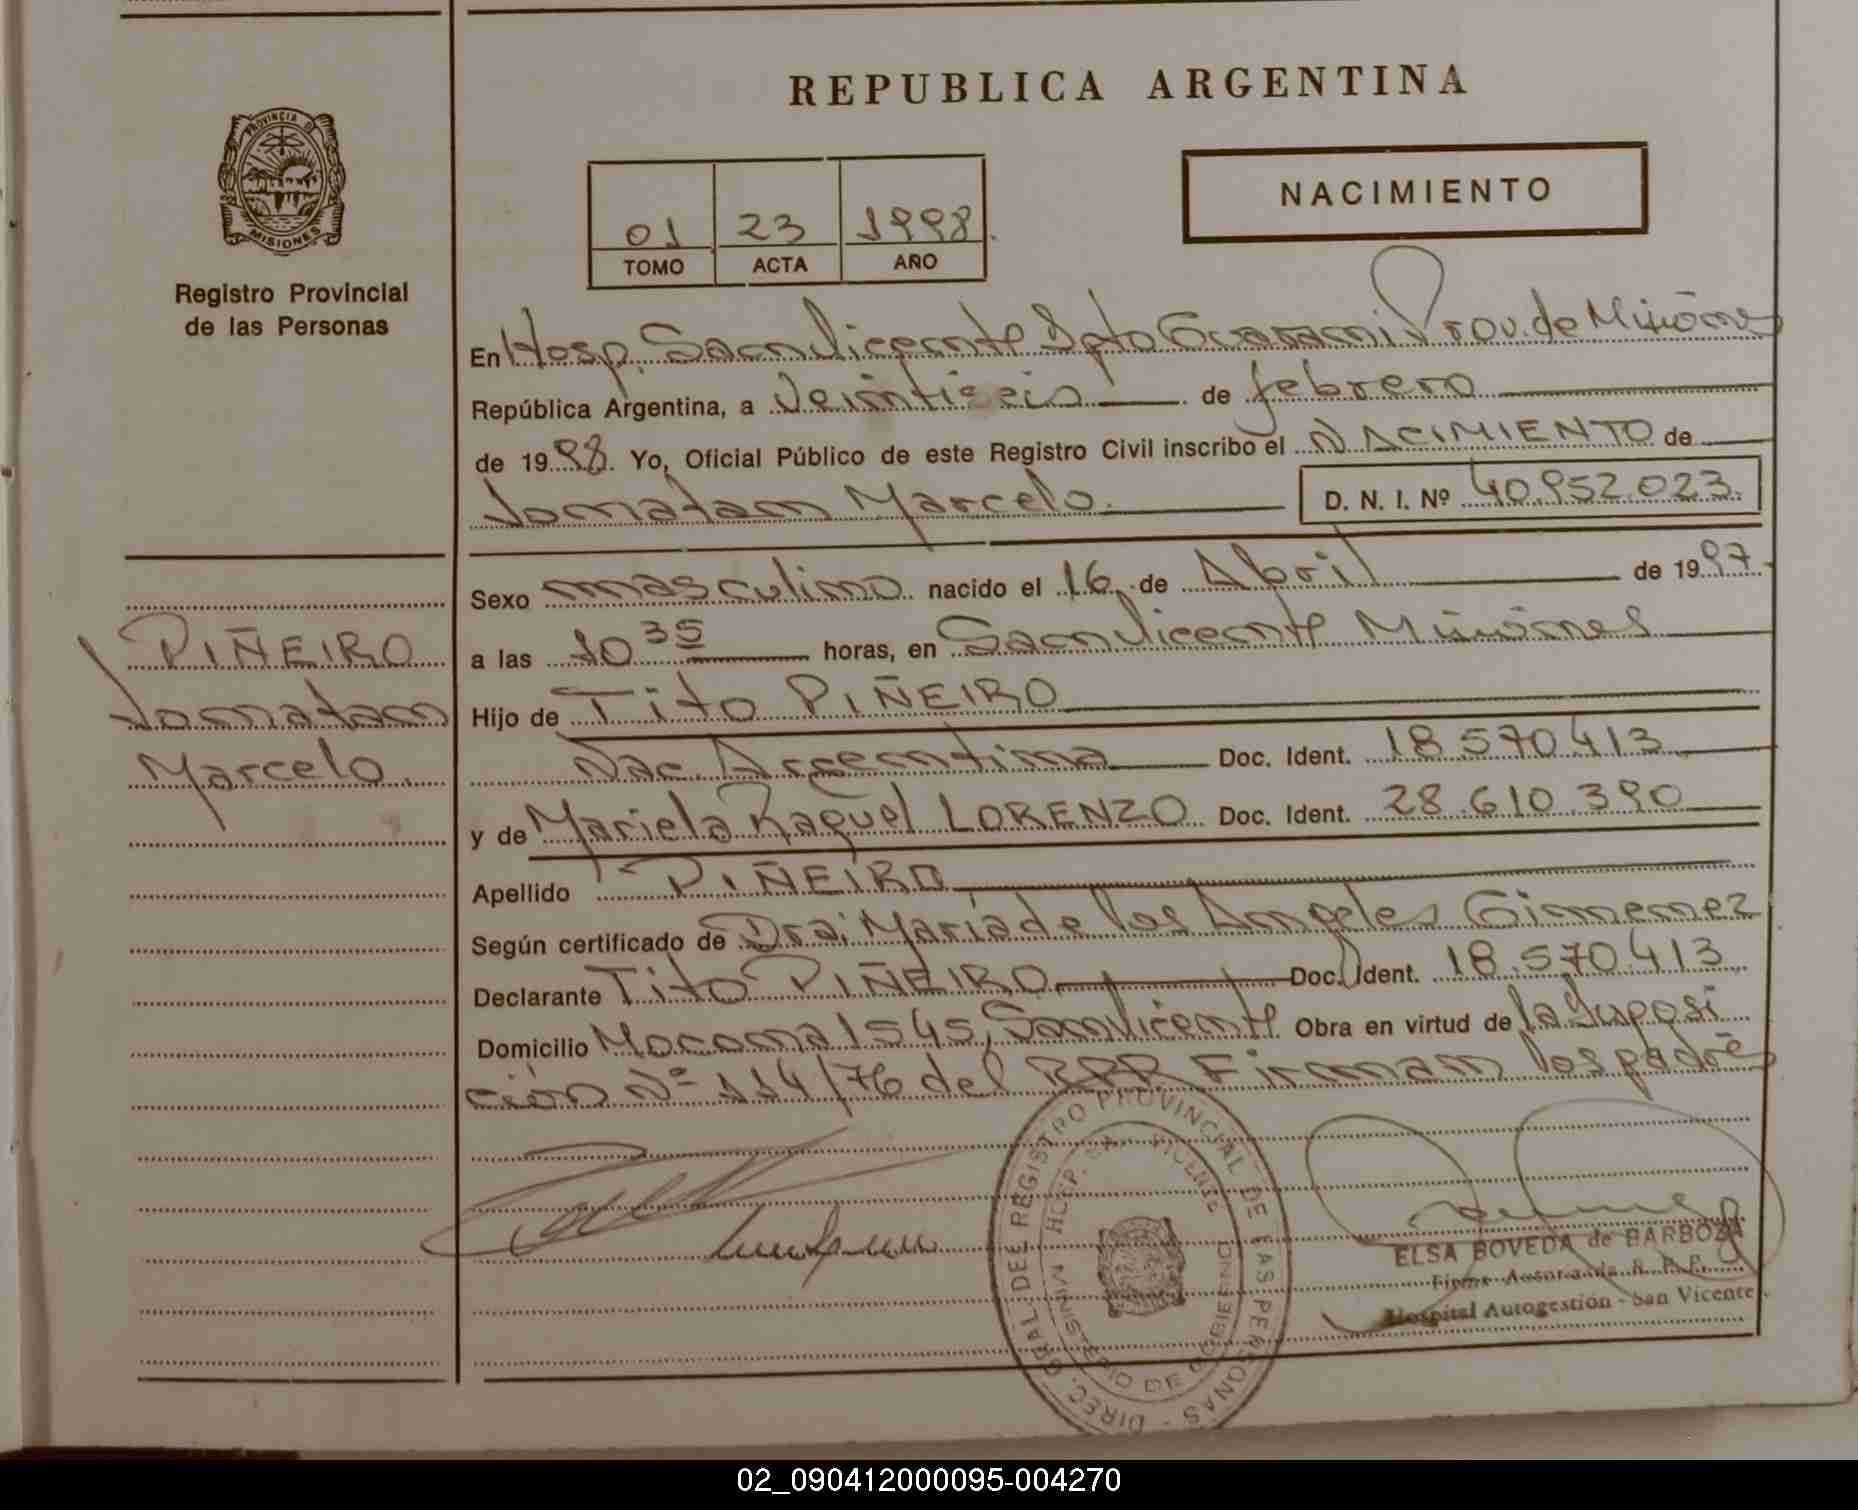 REPUBLICA ARGENTINA
PROVINCIA DE
MISIONES
Registro Provincial
de las Personas
01 23 1998
TOMO ACTA AÑO
NACIMIENTO
En Hosp. San Vicente Dpto Guarani Prov. de Misiones
República Argentina, a veintiseis de febrero
de 1998. Yo, Oficial Público de este Registro Civil inscribo el NACIMIENTO de
Jonatan Marcelo. D. N. I. Nº 40.952.023.
Sexo masculino nacido el 16 de Abril de 1997.
a las 10 35 horas, en San Vicente Misiones
Hijo de Tito PIÑEIRO
Nac. Argentina Doc. Ident. 18.570.413
y de Mariela Raquel LORENZO Doc. Ident. 28.610.390
Apellido PIÑEIRO
Según certificado de Dra: María de los Angeles Gimenez
Declarante Tito PIÑEIRO Doc. Ident. 18.570.413
Domicilio Mocona 1545, San Vicente Obra en virtud de la Disposi
ción Nº 114/76 del RPP. Firman los padres
PIÑEIRO
Jonatan
Marcelo.
DIREC. GRAL. DE REGISTRO PROVINCIAL DE LAS PERSONAS -
HOSP. SAN VICENTE
MINISTERIO DE GOBIERNO
ELSA BOVEDA de BARBOZA
Firma Autorizada R. P. P.
Hospital Autogestión - San Vicente
02_090412000095-004270